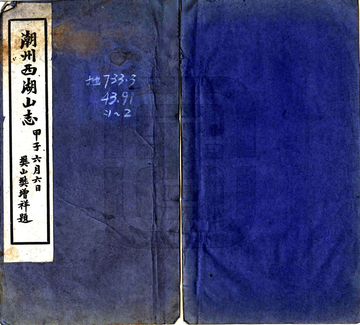 潮州西湖山志
甲子六月六日
樊山樊增祥題
地733·3
43.91
:1~2